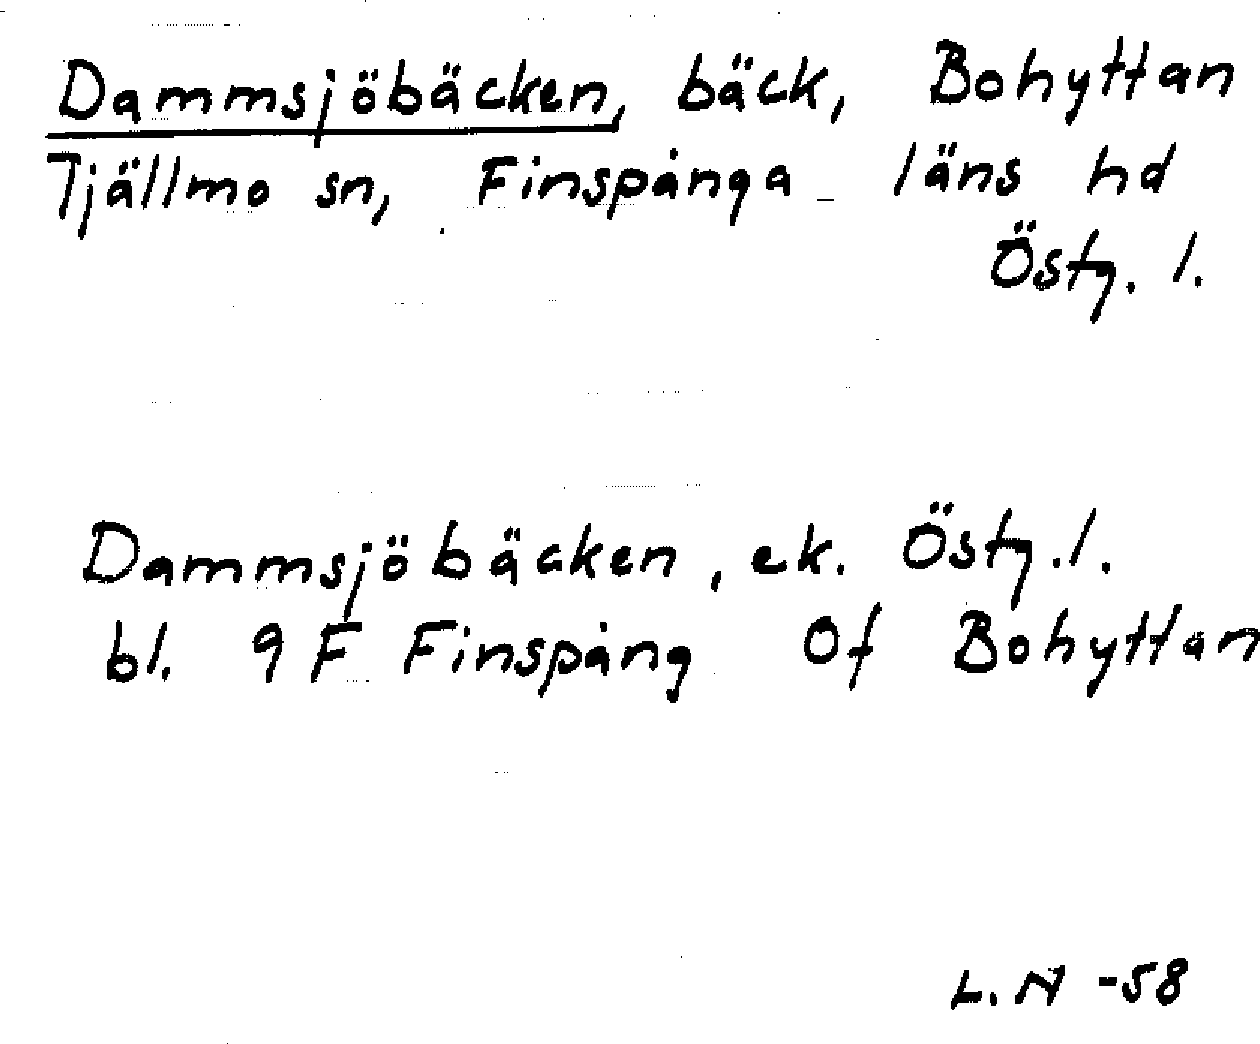 Dammsjöbäcken, bäck, Bohyttan
Tjällmo sn, Finspånga läns hd
Östg. l.
Dammsjöbäcken, ek. Östg. l.
bl. 9F Finspång Of Bohyttan
L. N -58